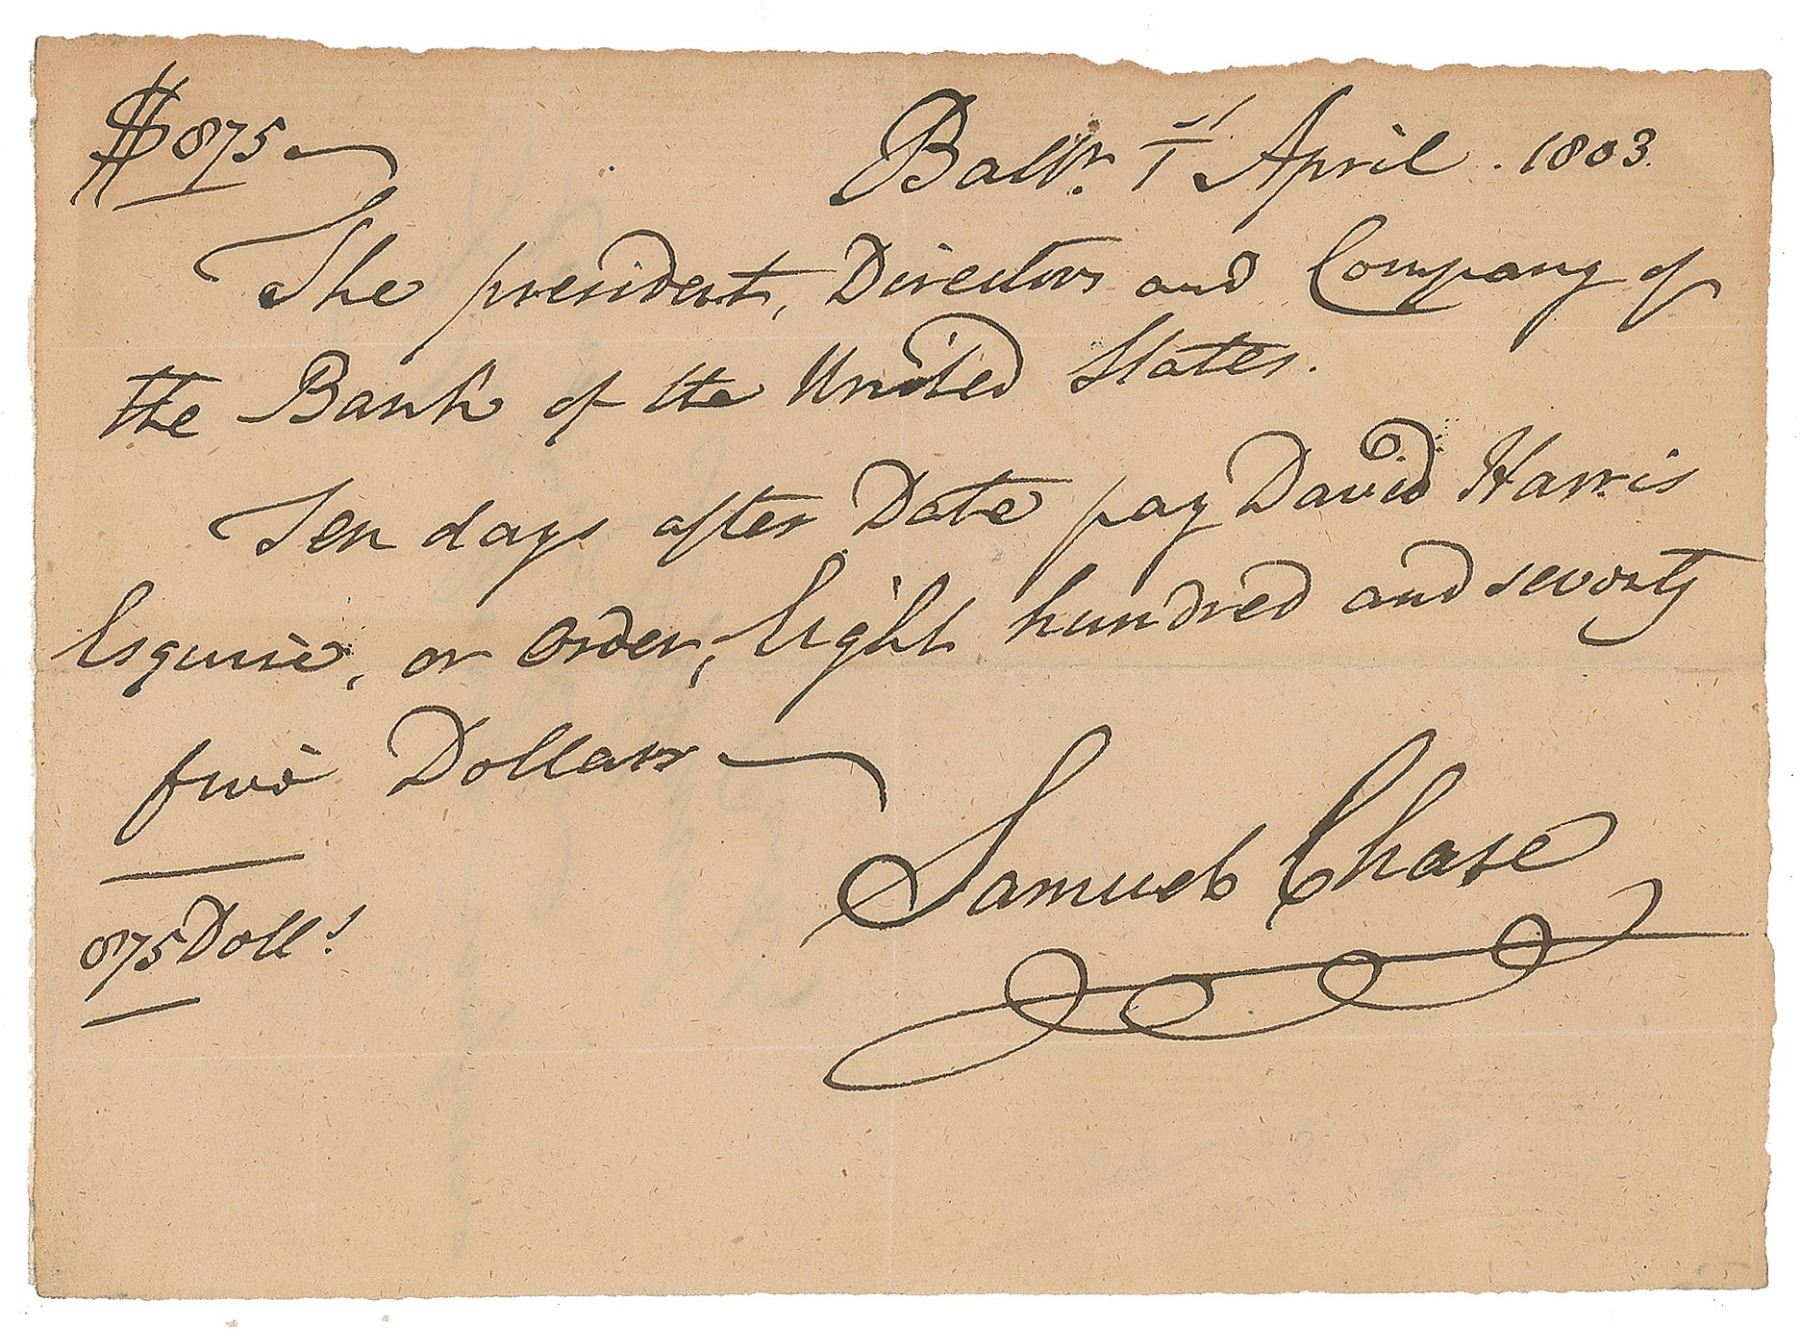 $875
Balt. 1st April. 1803.
The president, Directors and Company of
the Bank of the United States.
Ten days after Date pay David Harris
Esquire, or order, Eight hundred and seventy
five Dollars
Samuel Chase
875 Dolls